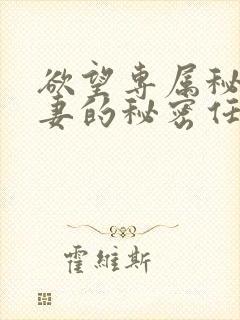 欲望専属秘
妻的秘密任
霍維斯